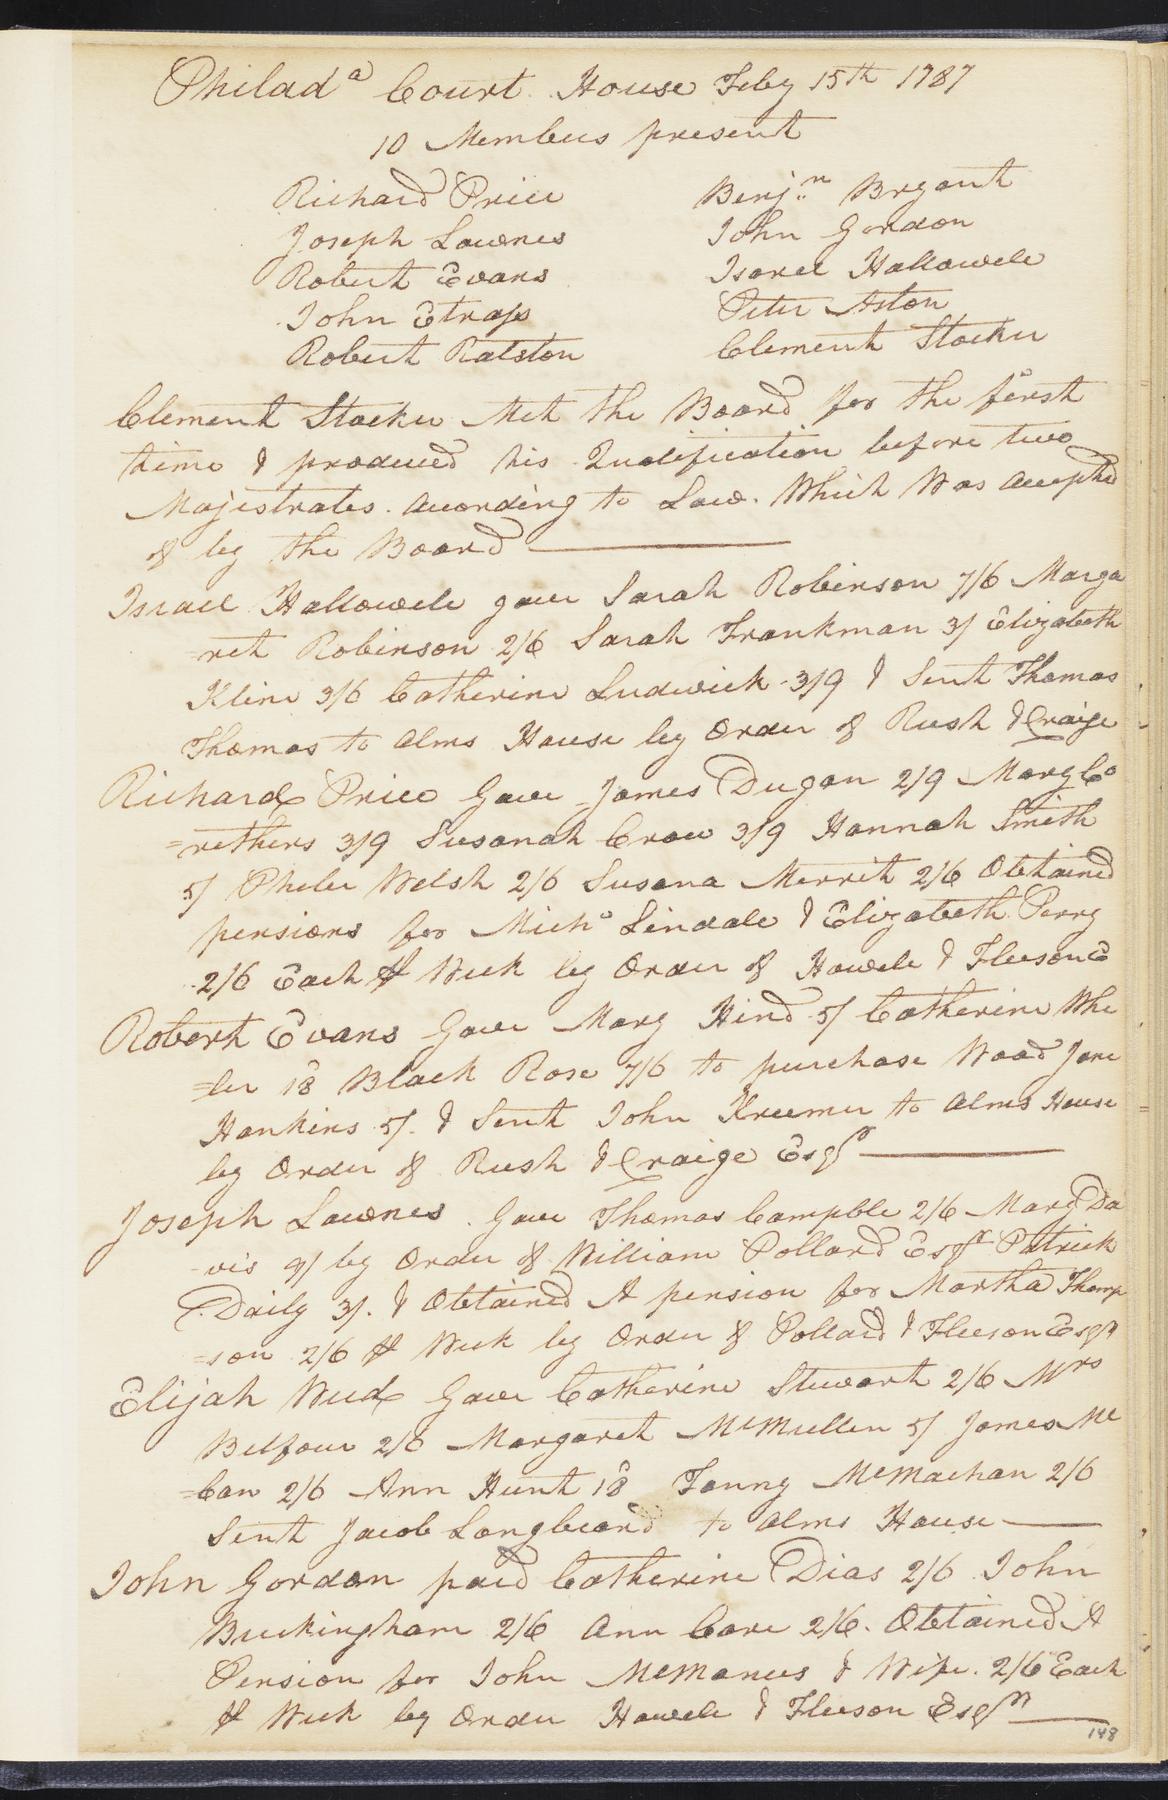 Philada Court House Feby 15th 1787
10 Members present
Richard Price
Joseph Lownes
Robert Evans
John Straps
Robert Ralston
Benjn Bryant
John Gordon
Israel Hallowele
Peter Aston
Clement Stocker
Clement Stocker Met the Board for the first
time & produced his Qualification before two
Majestrates. Acording to Law. Which Was Accepted
of by the Board
Israel Hallowele gave Sarah Robinson 7/6 Marga
=ret Robinson 2/6 Sarah Frankman 3/ Elizabeth
Kline 3/6 Catherine Ludwick 3/9 & Sent Thomas
Thomas to Alms House by Order of Rush & Craige
Richard Price Gave James Dugan 2/9 Mary Ca
=rethers 3/9 Susanah Crow 3/9 Hannah Smith
5/ Phebe Welsh 2/6 Susana Merrit 2/6 Obtained
pensions for Micho Lindale & Elizabeth Perry
2/6 Each ⅌ Week by Order of Howele & Fleeson E
Robert Evans Gave Mary Hind 5/ Catherine Whe
=ler 18 Black Rose 7/6 to purchase Wood Jane
Hankins 5/. & Sent John Kreemer to Alms House
by Order of Rush & Craige Esqrs
Joseph Lownes. Gave Thomas Campble 2/6 Mary Da
-vis 9/ by Order of William Pollard Esqr Patrick
Daily 3/. & Obtained A pension for Martha Thomp
=son 2/6 ⅌ Week by Order of Pollard & Fleeson Esqrs
Elijah Weed Gave Catherine Stewart 2/6 Mrs
Belfour 2/6 Margaret McMullen 5/ James Mc
=Can 2/6 Ann Hunt 18 Fanny McMachan 2/6
Sent Jacob Longbeard to Alms House
John Gordon paid Catherine Dias 2/6 John
Buckingham 2/6 Ann Care 2/6. Obtained A
Pension for John McManus & Wife. 2/6 Each
⅌ Week by Order Howele & Fleeson Esqrs
148